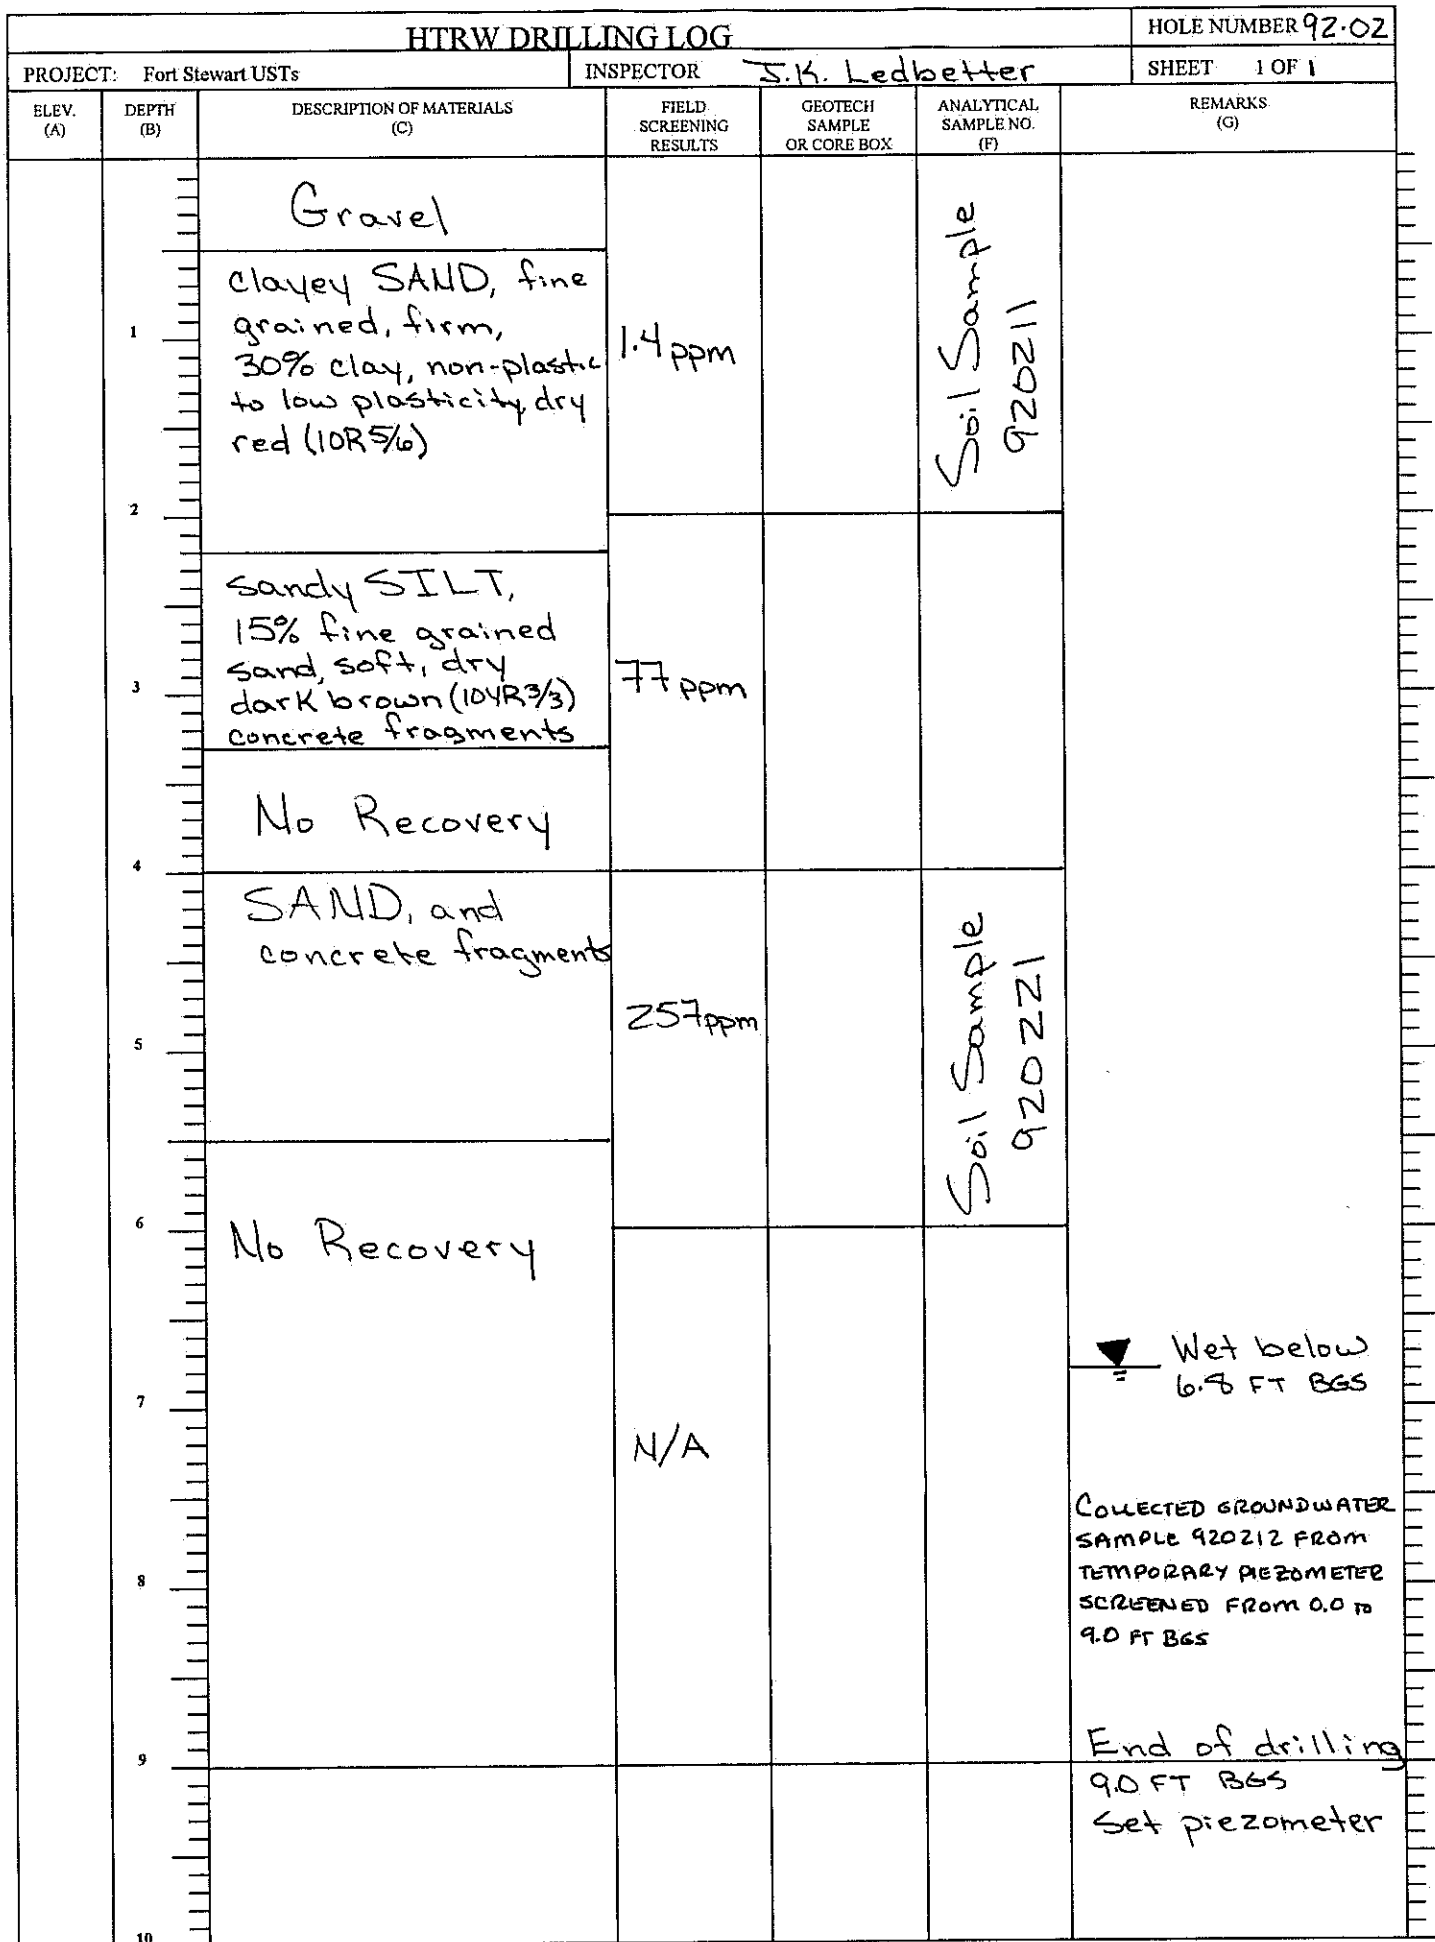 HTRW DRILLING LOG
HOLE NUMBER 92-02
PROJECT: Fort Stewart USTs
INSPECTOR J.K. Ledbetter
SHEET 1 OF 1
ELEV.
(A)
DEPTH
(B)
DESCRIPTION OF MATERIALS
(C)
FIELD
SCREENING
RESULTS
GEOTECH
SAMPLE
OR CORE BOX
ANALYTICAL
SAMPLE NO.
(F)
REMARKS
(G)
Gravel
clayey SAND, fine
grained, firm,
30% clay, non-plastic
to low plasticity, dry
red (10R 5/6)
1
1.4 ppm
Soil Sample
920211
2
sandy SILT,
15% fine grained
sand, soft, dry
dark brown (10YR 3/3)
concrete fragments
3
77 ppm
No Recovery
4
SAND, and
concrete fragments
257 ppm
Soil Sample
920221
5
6
No Recovery
Wet below
6.8 FT BGS
7
N/A
COLLECTED GROUNDWATER
SAMPLE 920212 FROM
TEMPORARY PIEZOMETER
SCREENED FROM 0.0 TO
9.0 FT BGS
8
9
End of drilling
9.0 FT BGS
Set piezometer
10